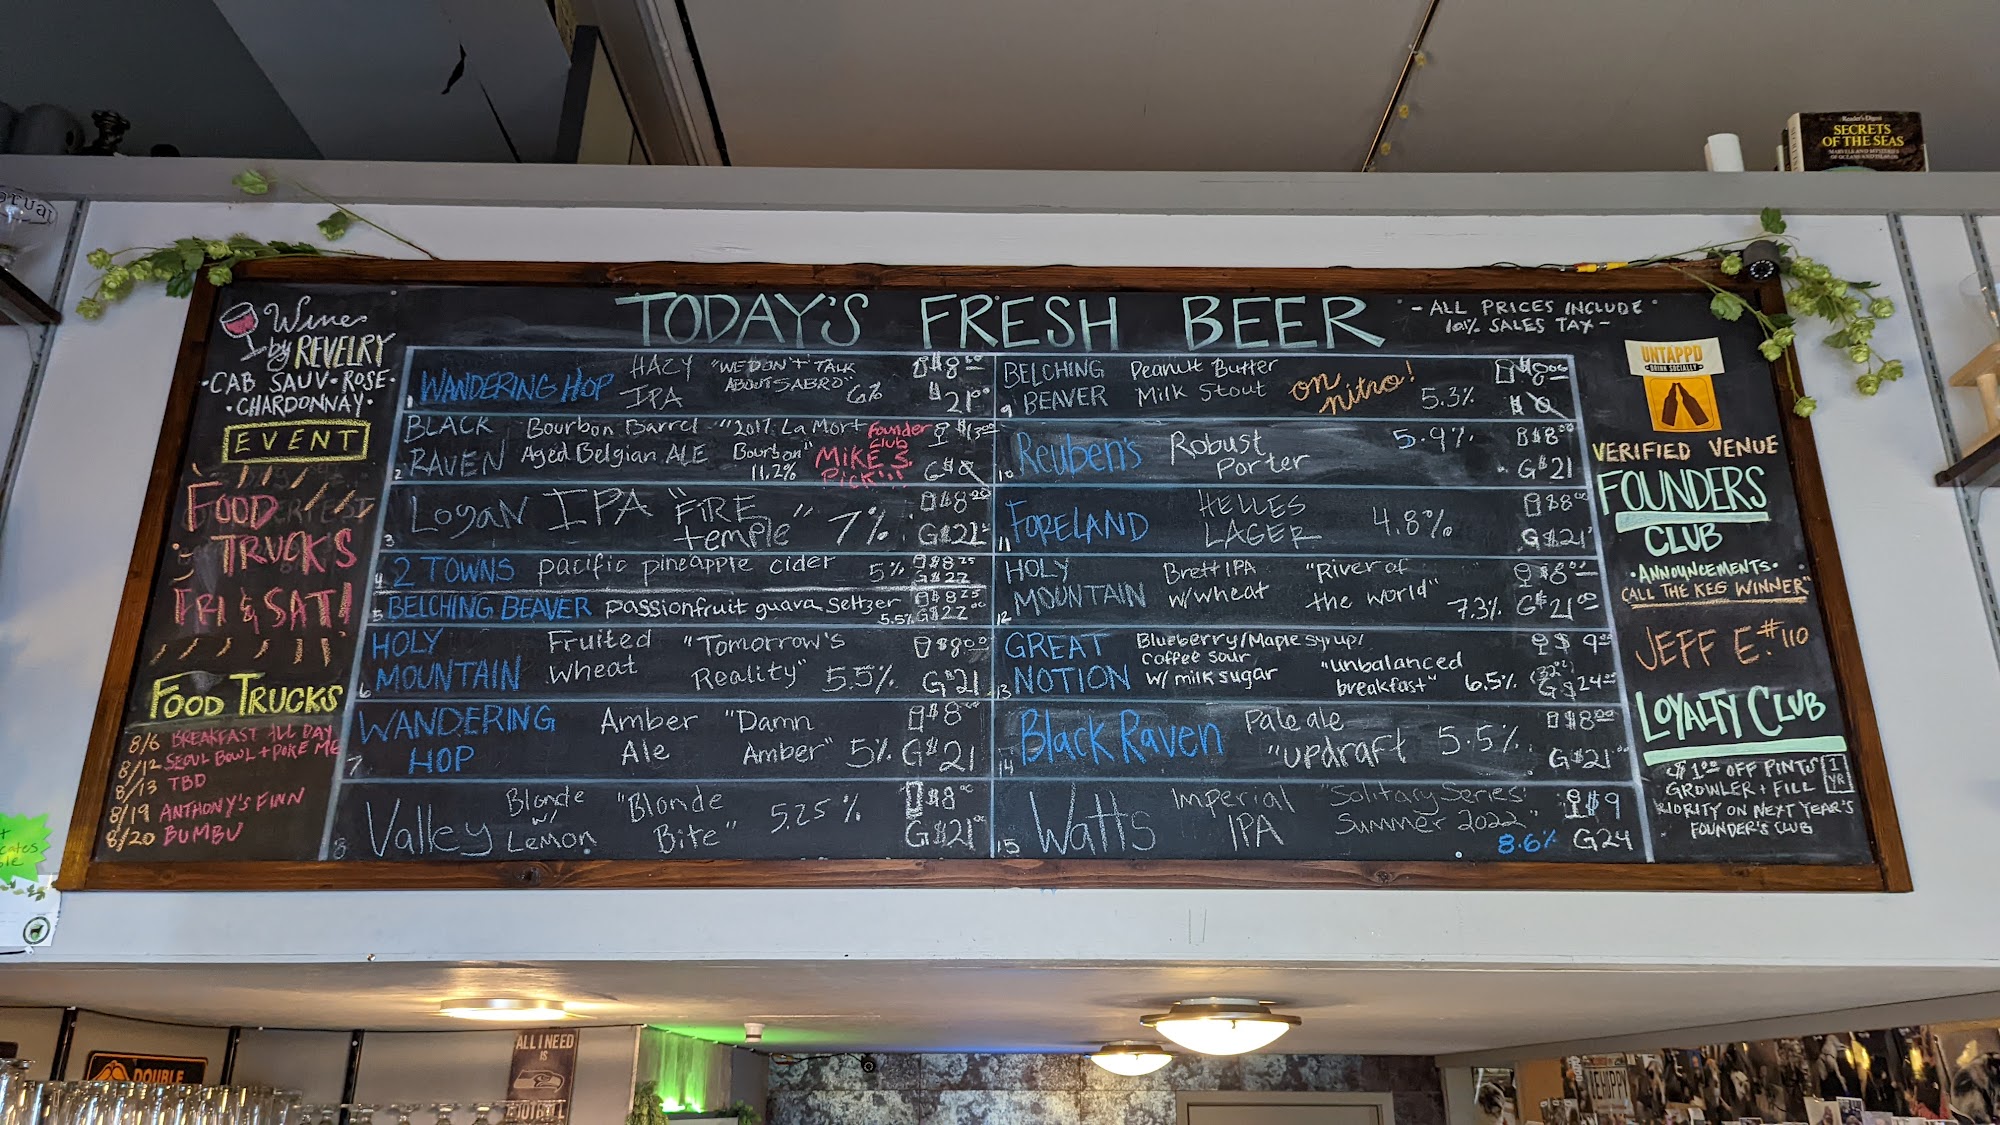 Reader's Digest
SECRETS
OF THE SEAS
Wines
by REVELRY
•CAB SAUV•ROSE•
•CHARDONNAY•
EVENT
FOOD
TRUCKS
FRI & SAT!
FOOD TRUCKS
8/6 BREAKFAST ALL DAY
8/12 SEOUL BOWL + POKE ME
8/13 TBD
8/19 ANTHONY'S FINN
8/20 BUMBU
TODAY'S FRESH BEER
- ALL PRICES INCLUDE
10.1% SALES TAX -
1 WANDERING HOP HAZY IPA "WE DON'T TALK ABOUT SABRO" 6% $8 $21
2 BLACK RAVEN Bourbon Barrel Aged Belgian ALE "2017 La Mort Bourbon" 11.2% Founder Club MIKE S. PICK!!! $13 G$0
3 Logan IPA "FIRE temple" 7% $8 G$21
4 2 TOWNS pacific pineapple cider 5% $8 25 G$22
5 BELCHING BEAVER passionfruit guava seltzer 5.5% $8 25 G$22 00
6 HOLY MOUNTAIN Fruited Wheat "Tomorrow's Reality" 5.5% $8 00 G$21
7 WANDERING HOP Amber Ale "Damn Amber" 5% $8 G$21
8 Valley Blonde w/ Lemon "Blonde Bite" 5.25% $8 G$21
9 BELCHING BEAVER Peanut Butter Milk Stout on nitro! 5.3% $8 $0
10 Reuben's Robust Porter 5.9% $8 G$21
11 FORELAND HELLES LAGER 4.8% $8 G$21
12 HOLY MOUNTAIN Brett IPA w/wheat "River of the World" 7.3% $8 G$21 00
13 GREAT NOTION Blueberry/Maple syrup/ coffee sour w/ milk sugar "unbalanced breakfast" 6.5% $9 (32oz) G$24
14 Black Raven Pale ale "updraft 5.5% $8 00 G$21
15 Watts Imperial IPA "Solitary Series" Summer 2022" 8.6% $9 G24
UNTAPPD
DRINK SOCIALLY
VERIFIED VENUE
FOUNDERS
CLUB
•ANNOUNCEMENTS•
CALL THE KEG WINNER"
JEFF E. #110
LOYALTY CLUB
$1 00 OFF PINTS 1 YR
GROWLER + FILL
RIORITY ON NEXT YEAR'S
FOUNDER'S CLUB
DOUBLE
ALL I NEED
IS
FOOTBALL